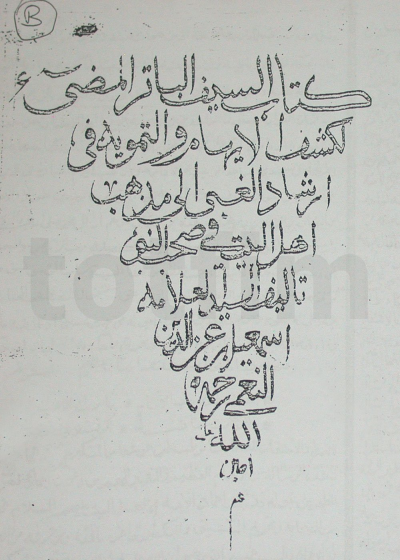 B
كتاب السيف الباتر المضيء
لكشف الايهام والتمويه في
ارشاد الغبي الى مذهب
اهل البيت في صحب النبي
تاليف السيد العلامة
اسمعيل بن عز الدين
النعمي رحمه
الله
امين
totfim